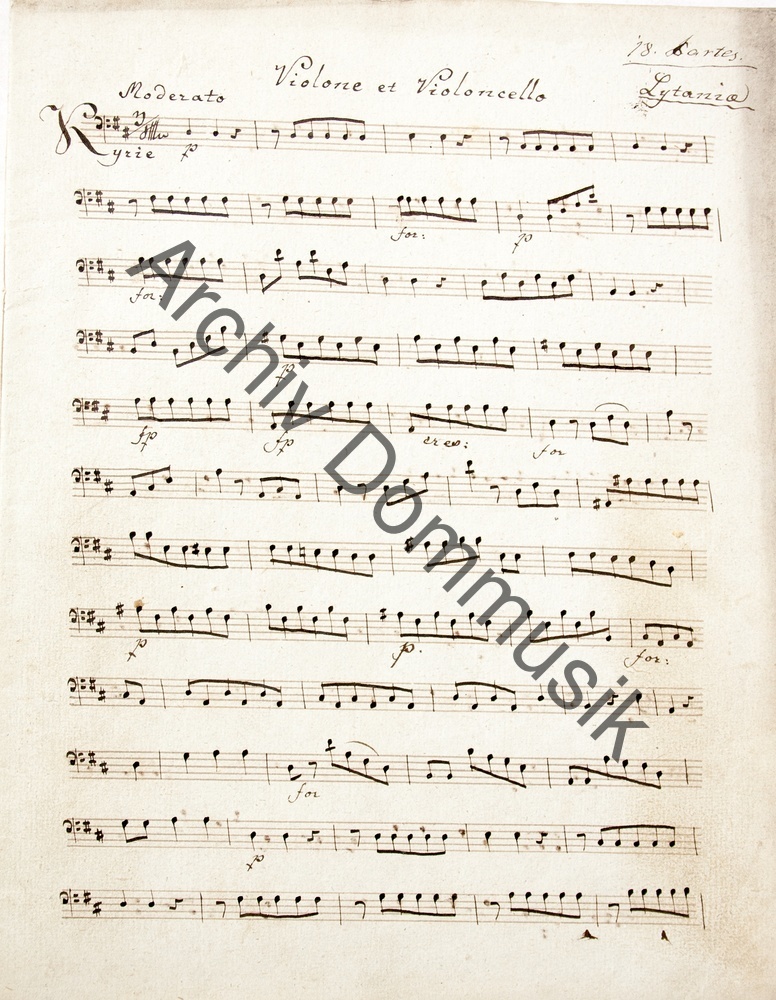 18. Partes.
Violone et Violoncello
Lytaniæ
Moderato
Kyrie p
for: p
for:
p
fp fp cres: for
p p. for:
for
p
Archiv Dommusik